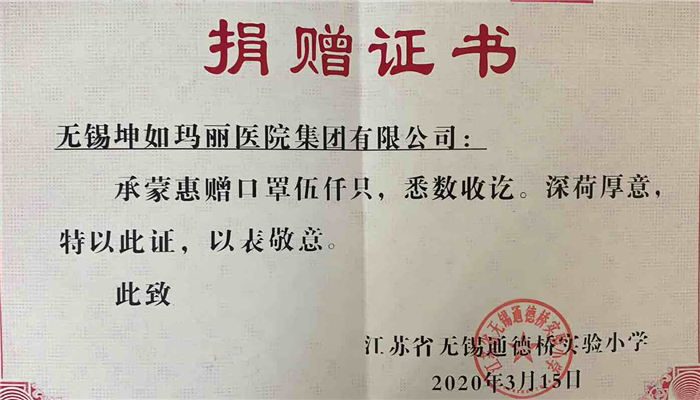 捐赠证书
无锡坤如玛丽医院集团有限公司：
承蒙惠赠口罩伍仟只，悉数收讫。深荷厚意，
特以此证，以表敬意。
此致
江苏省无锡通德桥实验小学
2020年3月15日
江苏省无锡通德桥实验小学